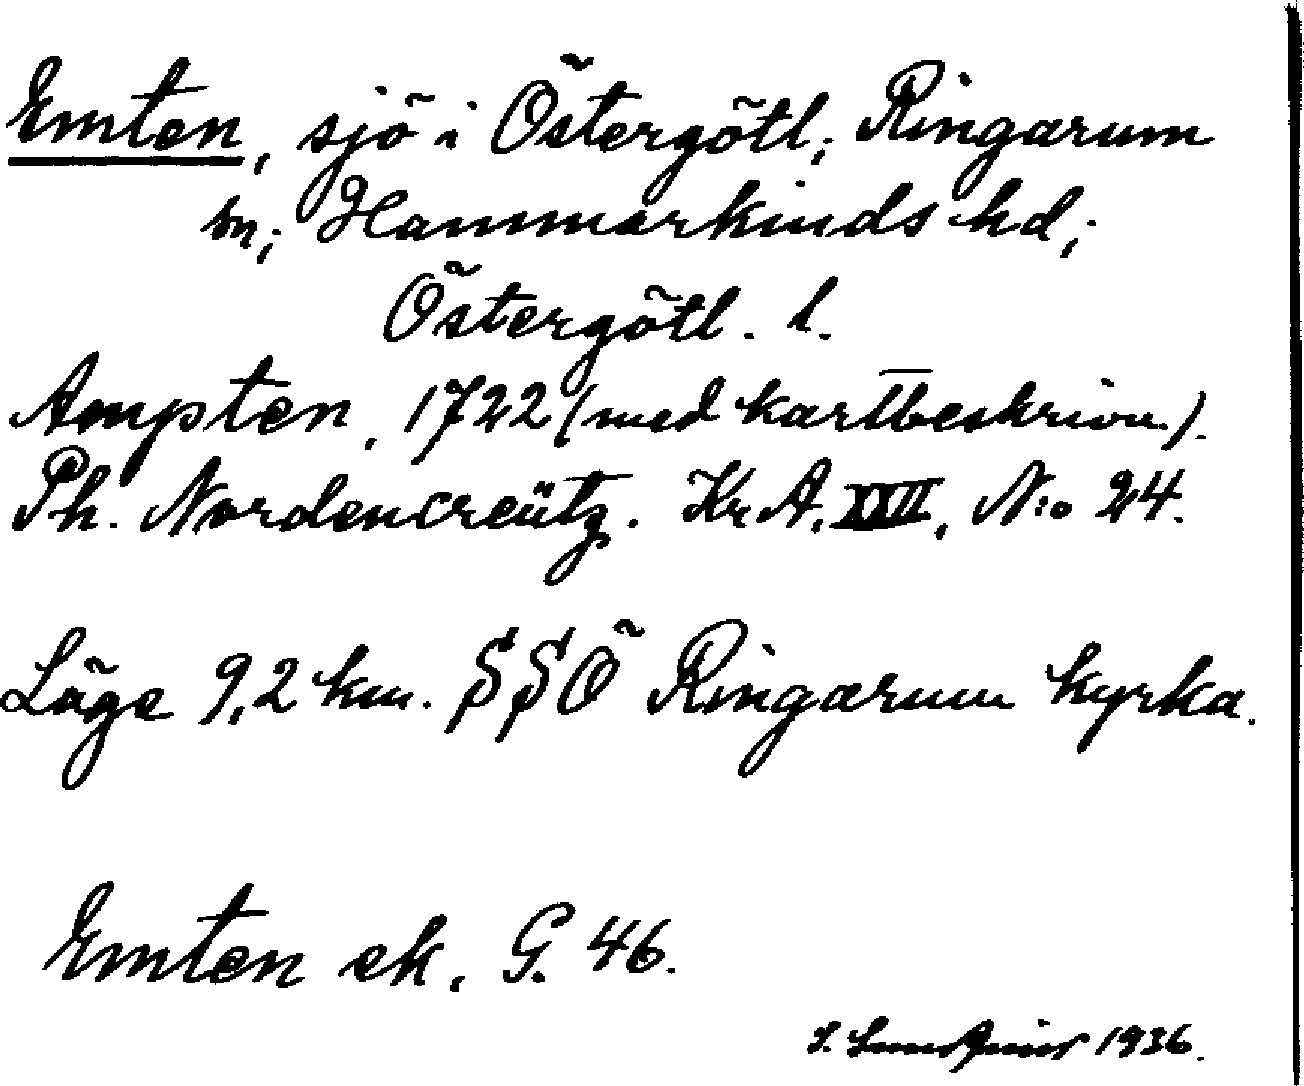 Emten, sjö i Östergötl; Ringarum
sn; Hammarkinds hd;
Östergötl. l.
Ampten, 1722 (med kartbeskrivn.).
Ph. Nordencreütz. Kr A. XXVII, N:o 24.
Läge 9,2 km. SSÖ Ringarum kyrka.
Emten ek. G. 46.
1936.